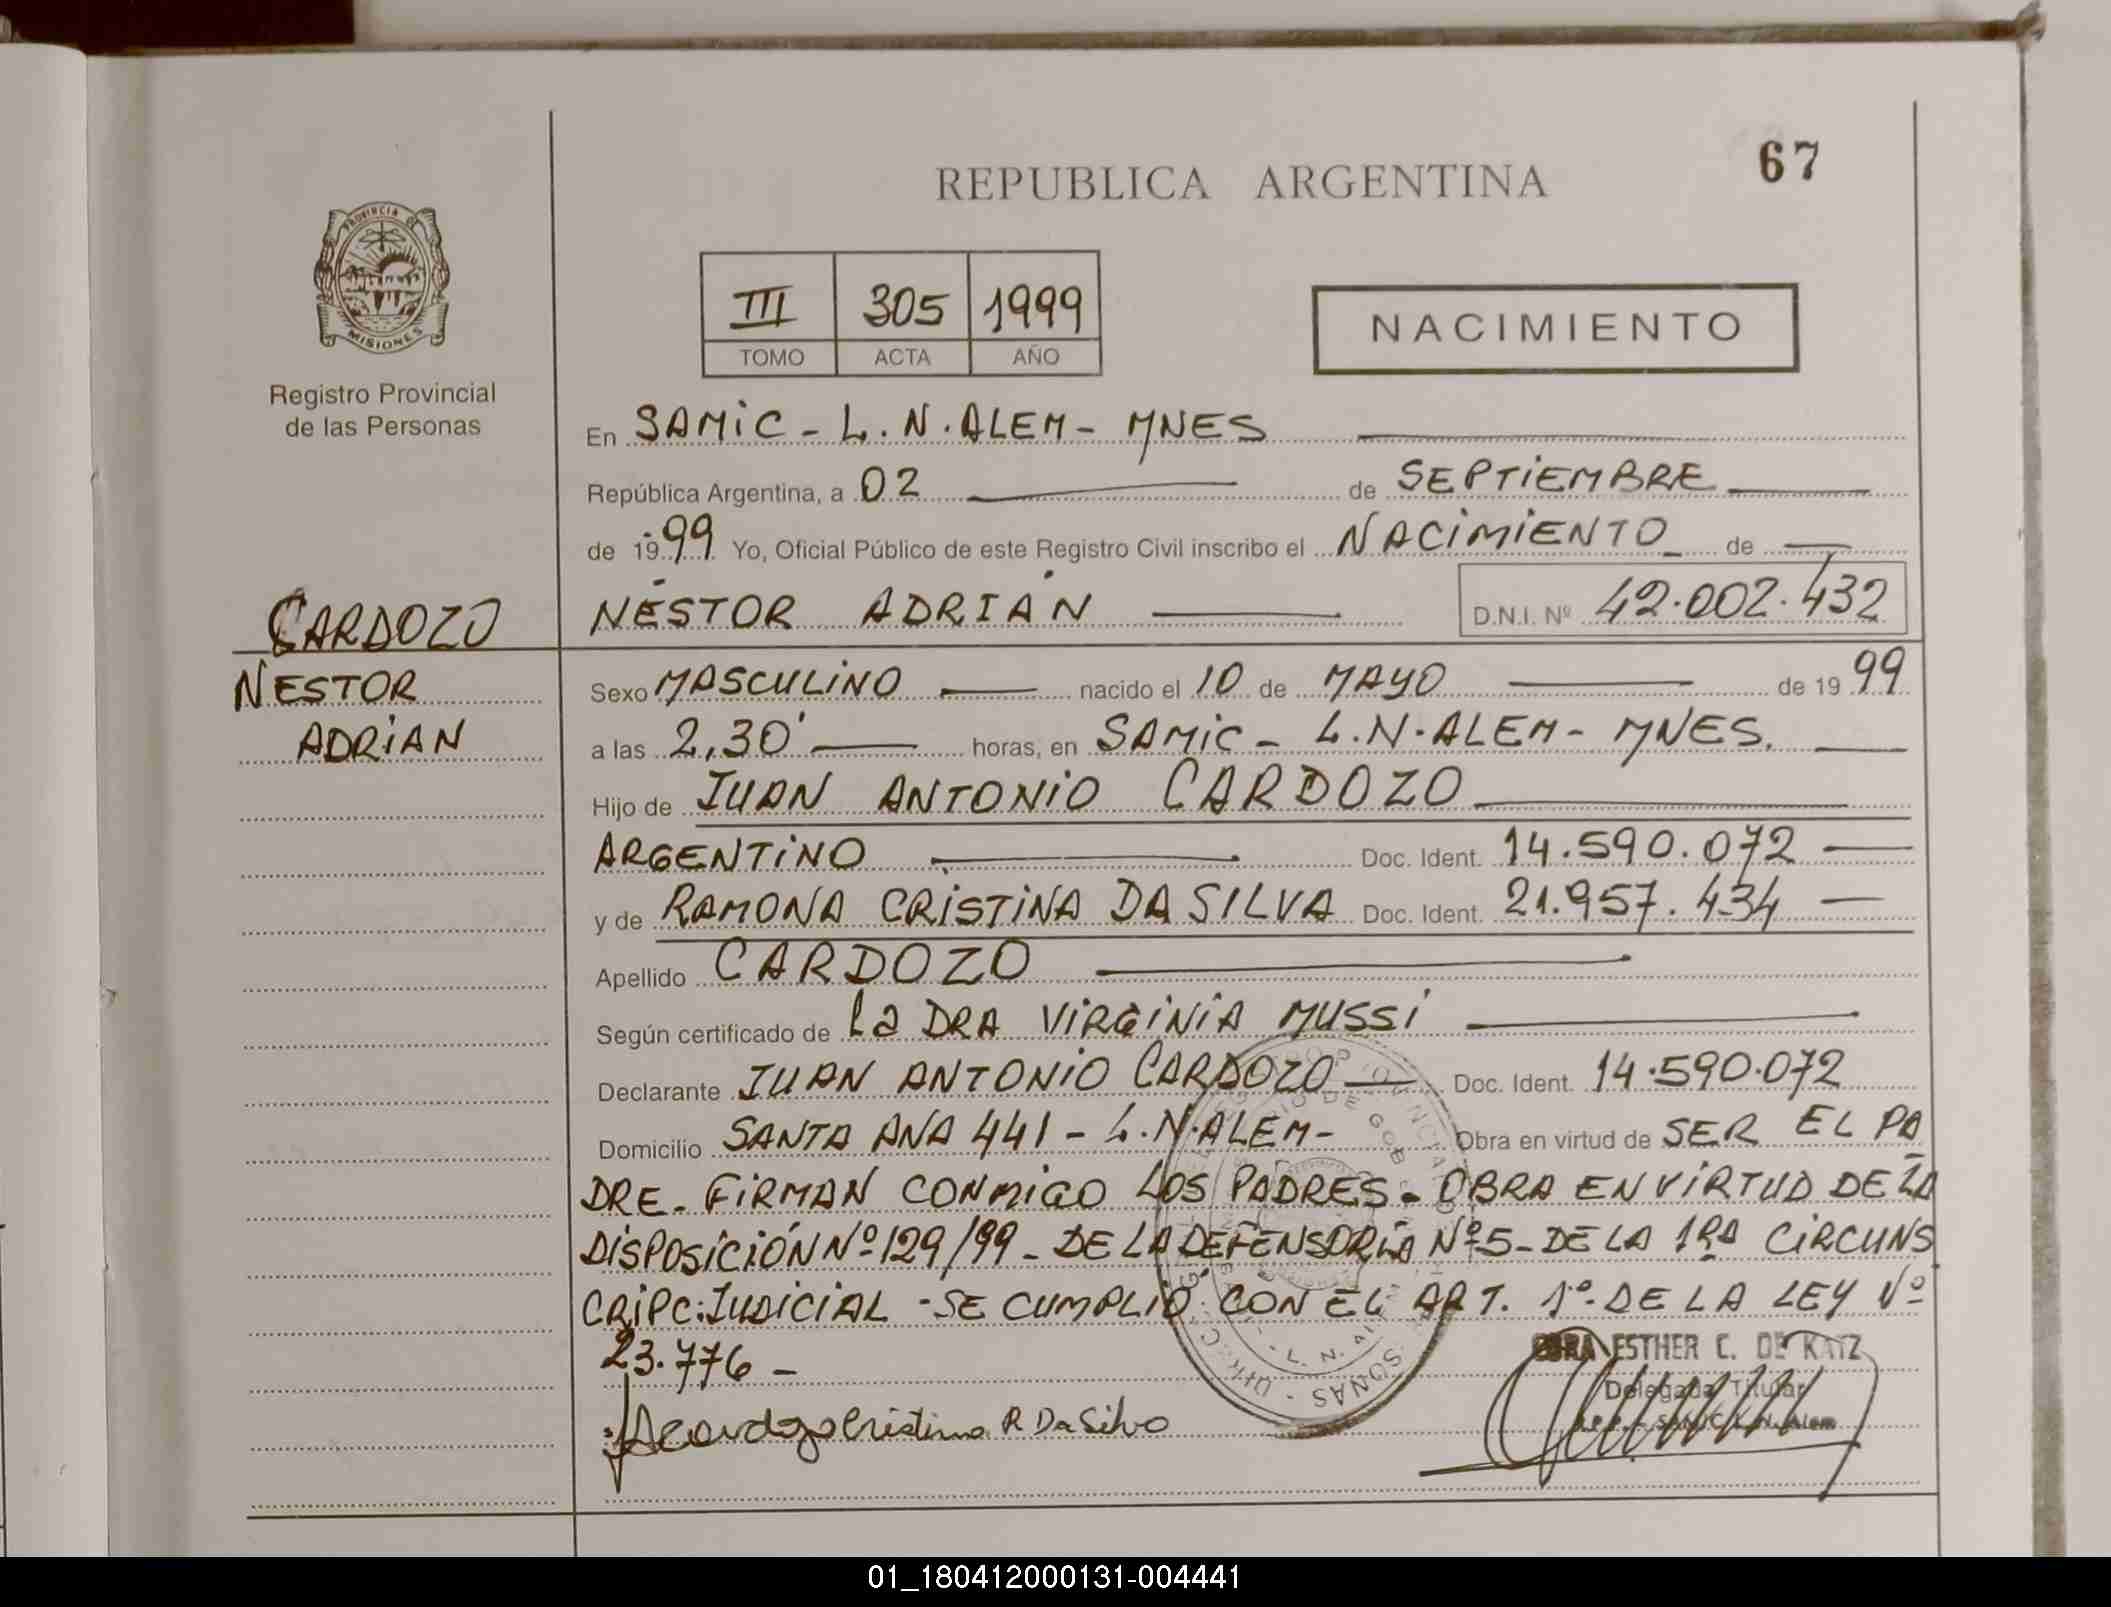 REPUBLICA ARGENTINA
67
PROVINCIA DE
MISIONES
Registro Provincial
de las Personas
III 305 1999
TOMO ACTA AÑO
NACIMIENTO
En SAMIC - L.N. ALEM - MNES
República Argentina, a 02 de SEPTIEMBRE
de 1999 Yo, Oficial Público de este Registro Civil inscribo el NACIMIENTO de
NÉSTOR ADRIÁN D.N.I. Nº 42.002.432
CARDOZO
NESTOR
ADRIAN
Sexo MASCULINO nacido el 10 de MAYO de 1999
a las 2,30' horas, en SAMIC - L.N. ALEM - MNES.
Hijo de JUAN ANTONIO CARDOZO
ARGENTINO Doc. Ident. 14.590.072
y de RAMONA CRISTINA DA SILVA Doc. Ident. 21.957.434
Apellido CARDOZO
Según certificado de La DRA VIRGINIA MUSSI
Declarante JUAN ANTONIO CARDOZO Doc. Ident. 14.590.072
Domicilio SANTA ANA 441 - L.N. ALEM - Obra en virtud de SER EL PA
DRE - FIRMAN CONMIGO LOS PADRES - OBRA EN VIRTUD DE LA
DISPOSICIÓN Nº 129/99 - DE LA DEFENSORÍA Nº 5 - DE LA 1RA CIRCUNS
CRIPC: JUDICIAL - SE CUMPLIÓ CON EL ART. 1º DE LA LEY Nº
23.776 -
Cristina R Da Silva
ESTHER C. DE KATZ
Delegada Titular
R.P.P. - SAMIC L.N. Alem
01_180412000131-004441